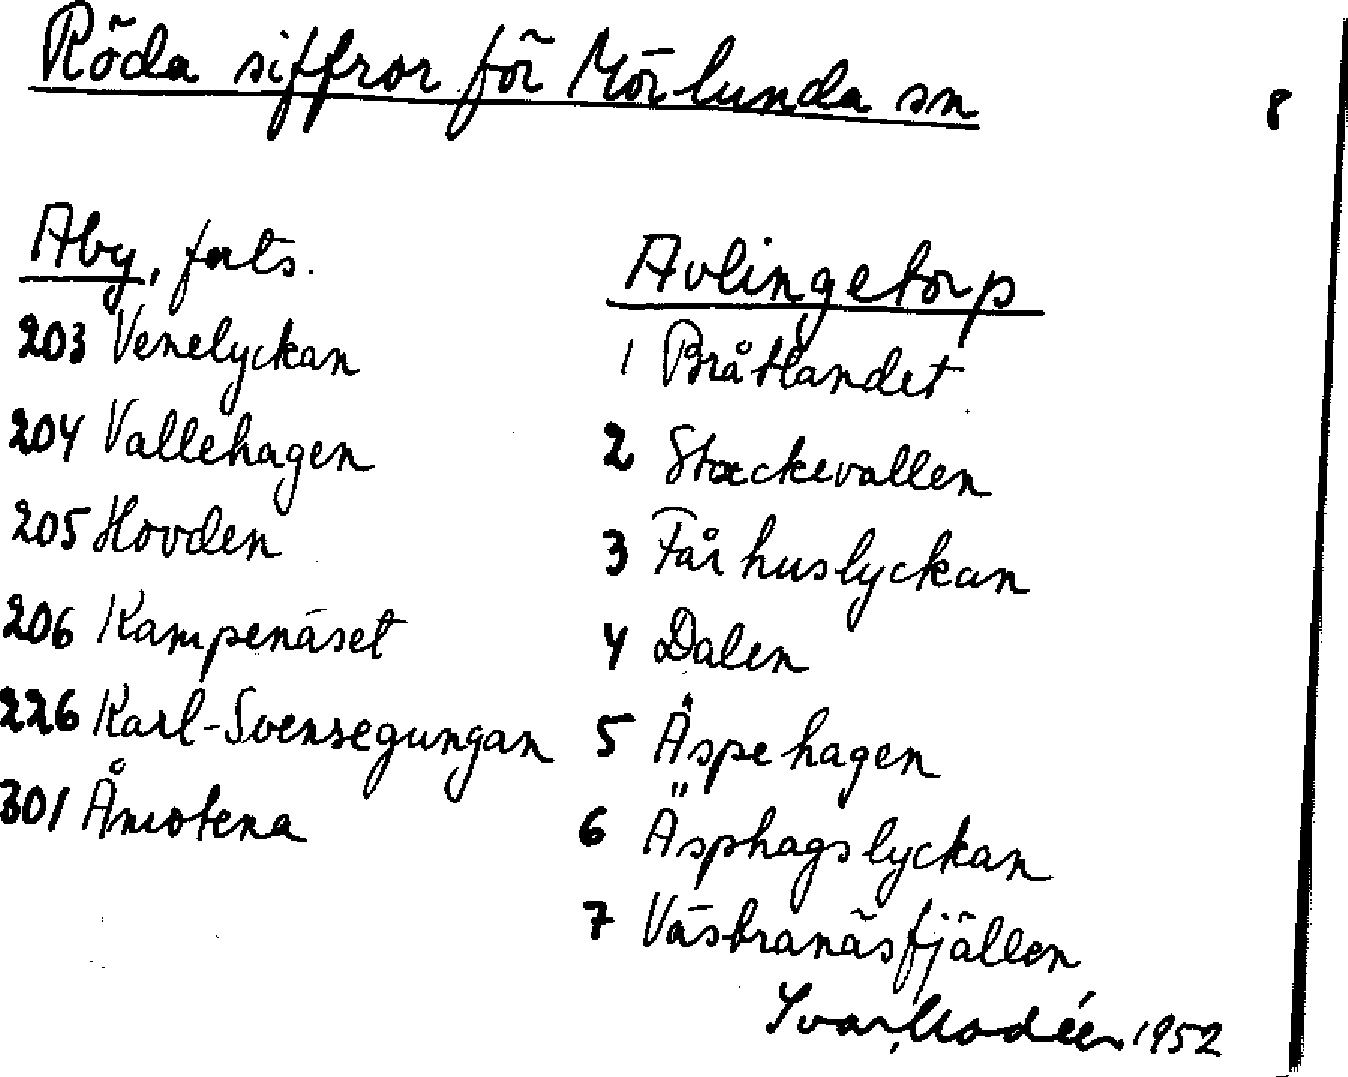 Röda siffror för Mörlunda sn
8
Aby, forts.
203 Venelyckan
204 Vallehagen
205 Hovden
206 Kampenäset
226 Karl-Svensegungan
301 Åmotena
Avlingetorp
1 Bråtlandet
2 Stockevallen
3 Fårhuslyckan
4 Dalen
5 Äspehagen
6 Äsphagslyckan
7 Västranäsfjällen
Ivar Modéer 1952